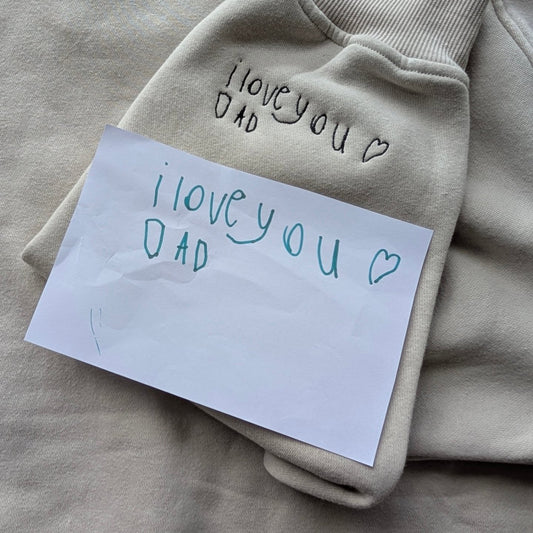 i love you ♡
DAD
i love you ♡
DAD